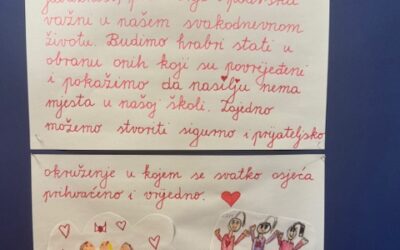 važni u našem svakodnevnom
životu. Budimo hrabri stati u
obranu onih koji su povrijeđeni
i pokažimo da nasilju nema
mjesta u našoj školi. Zajedno
možemo stvoriti sigurno i prijateljsko
okruženje u kojem se svatko osjeća
prihvaćeno i vrijedno.